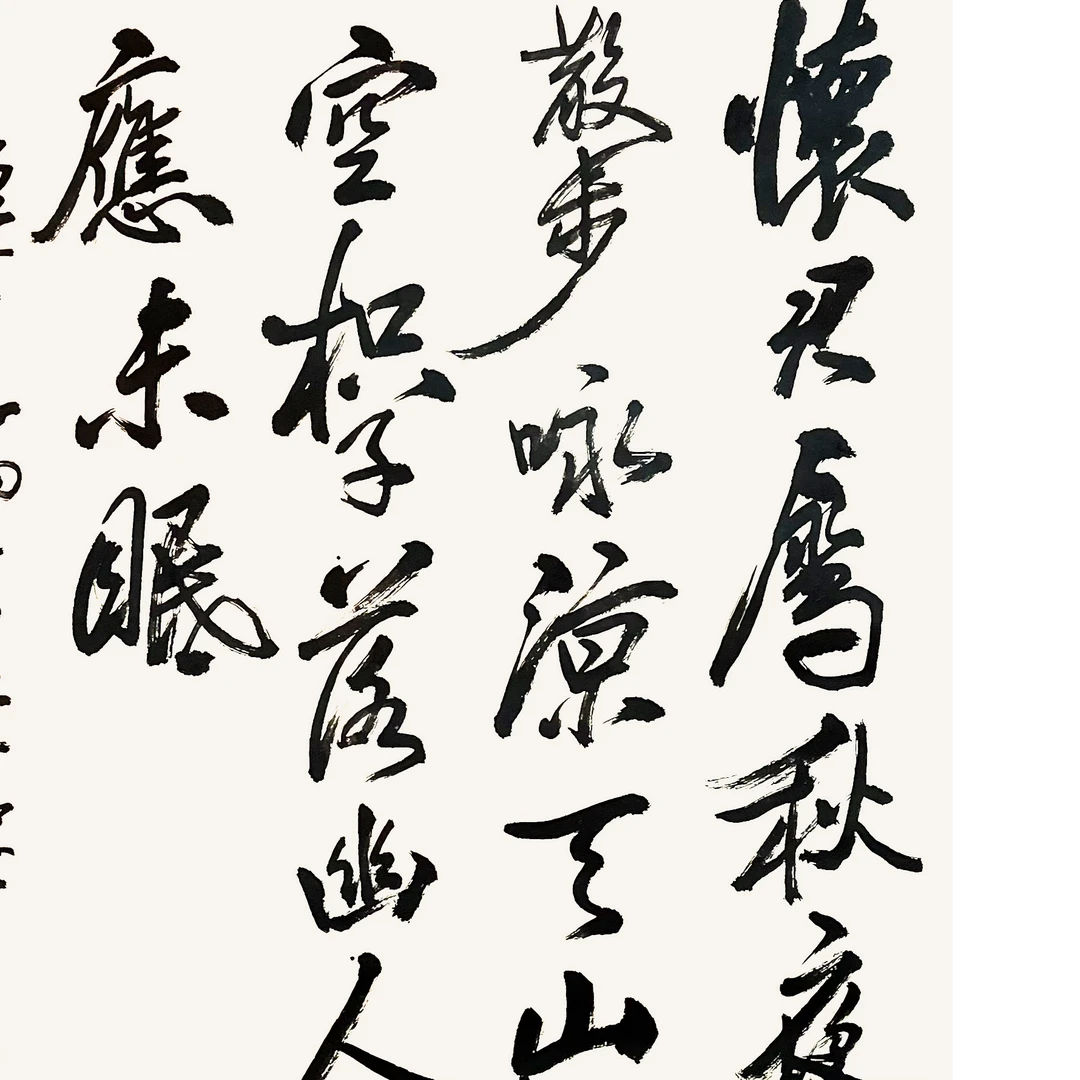 懷君屬秋夜
散步咏涼天山
空松子落幽人
應未眠